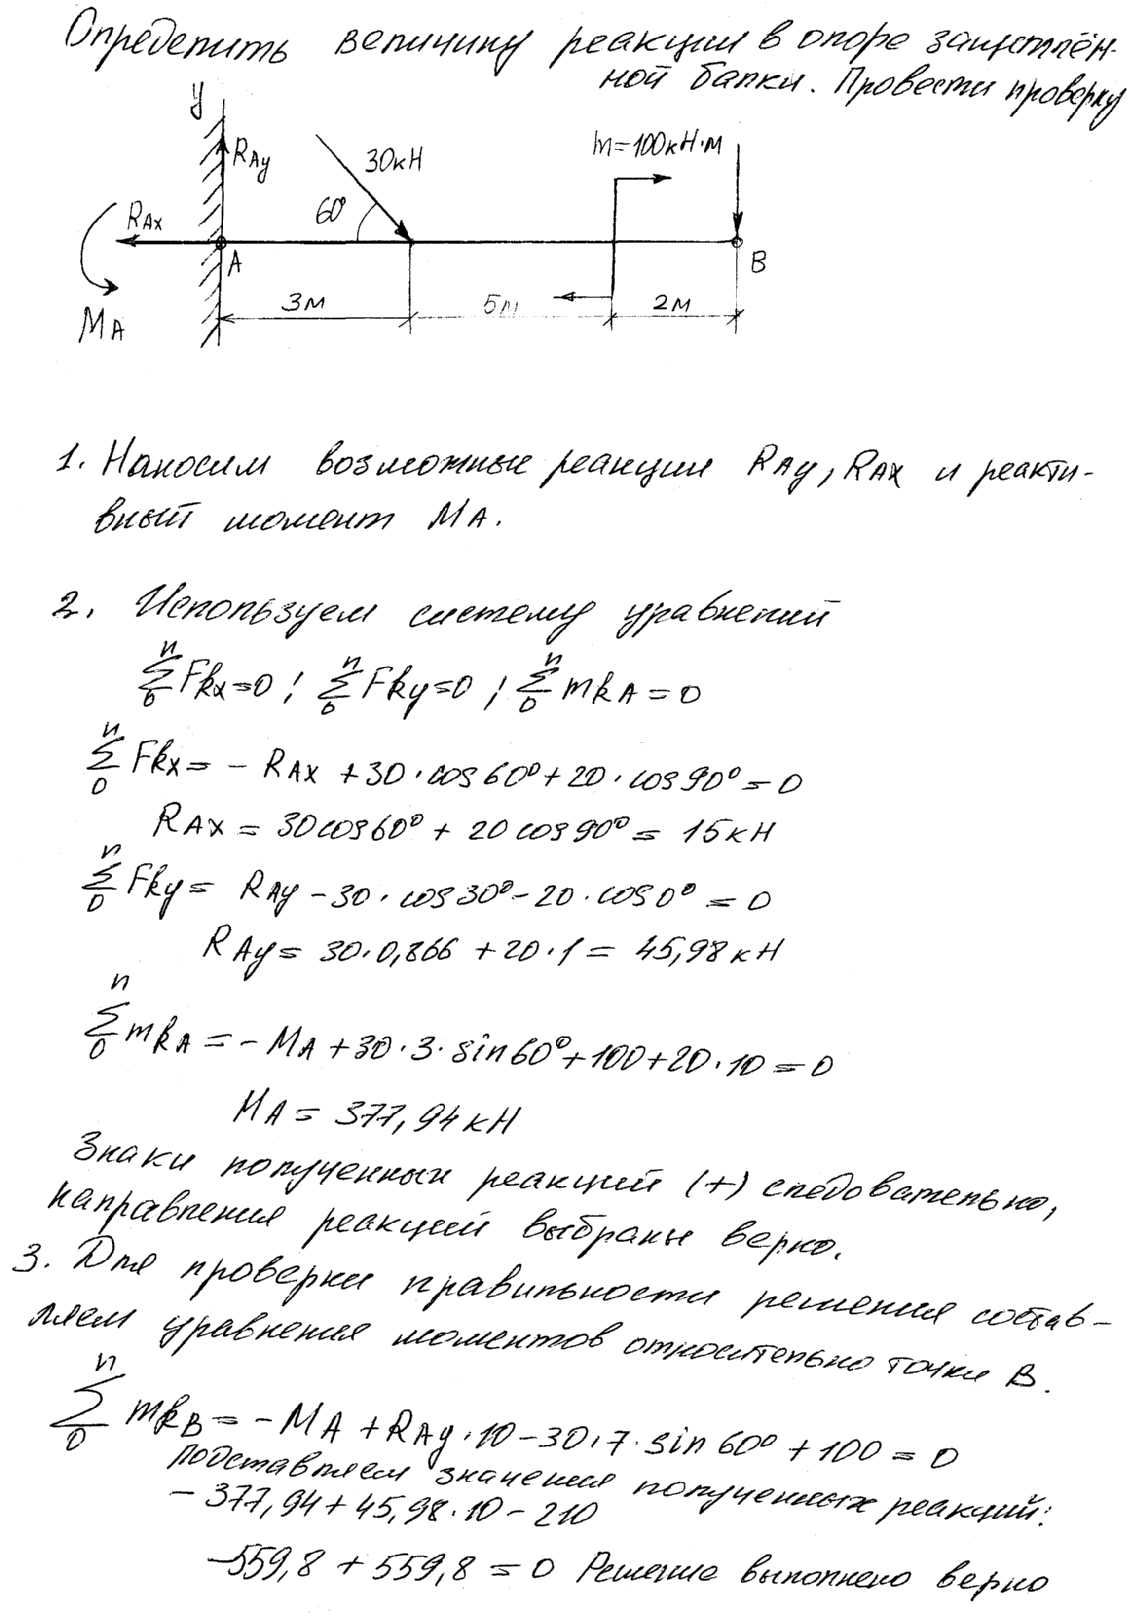 Определить величину реакции в опоре защемлён-
ной балки. Провести проверку
y
RAy
30кН
m=100кН·м
60°
RAx
A
B
MA
3м
5м
2м
1. Наносим возможные реакции RAy, RAx и реакти-
вный момент MA.
2. Используем систему уравнений
n∑0 Fkx=0; n∑0 Fky=0; n∑0 mkA=0
n∑0 Fkx= - RAx +30·cos60°+20·cos90°=0
RAx = 30cos60° + 20cos90° = 15кН
n∑0 Fky= RAy -30·cos30°-20·cos0° =0
RAy= 30·0,866 +20·1 = 45,98кН
n∑0 mkA = - MA +30·3·sin60°+100+20·10=0
MA = 377,94кН
Знаки полученных реакций (+) следовательно,
направления реакций выбраны верно.
3. Для проверки правильности решения состав-
ляем уравнения моментов относительно точки B.
n∑0 mkB = - MA + RAy·10-30·7·sin60° +100=0
подставляем значения полученных реакций:
- 377,94+45,98·10-210
-559,8 + 559,8 = 0 Решение выполнено верно